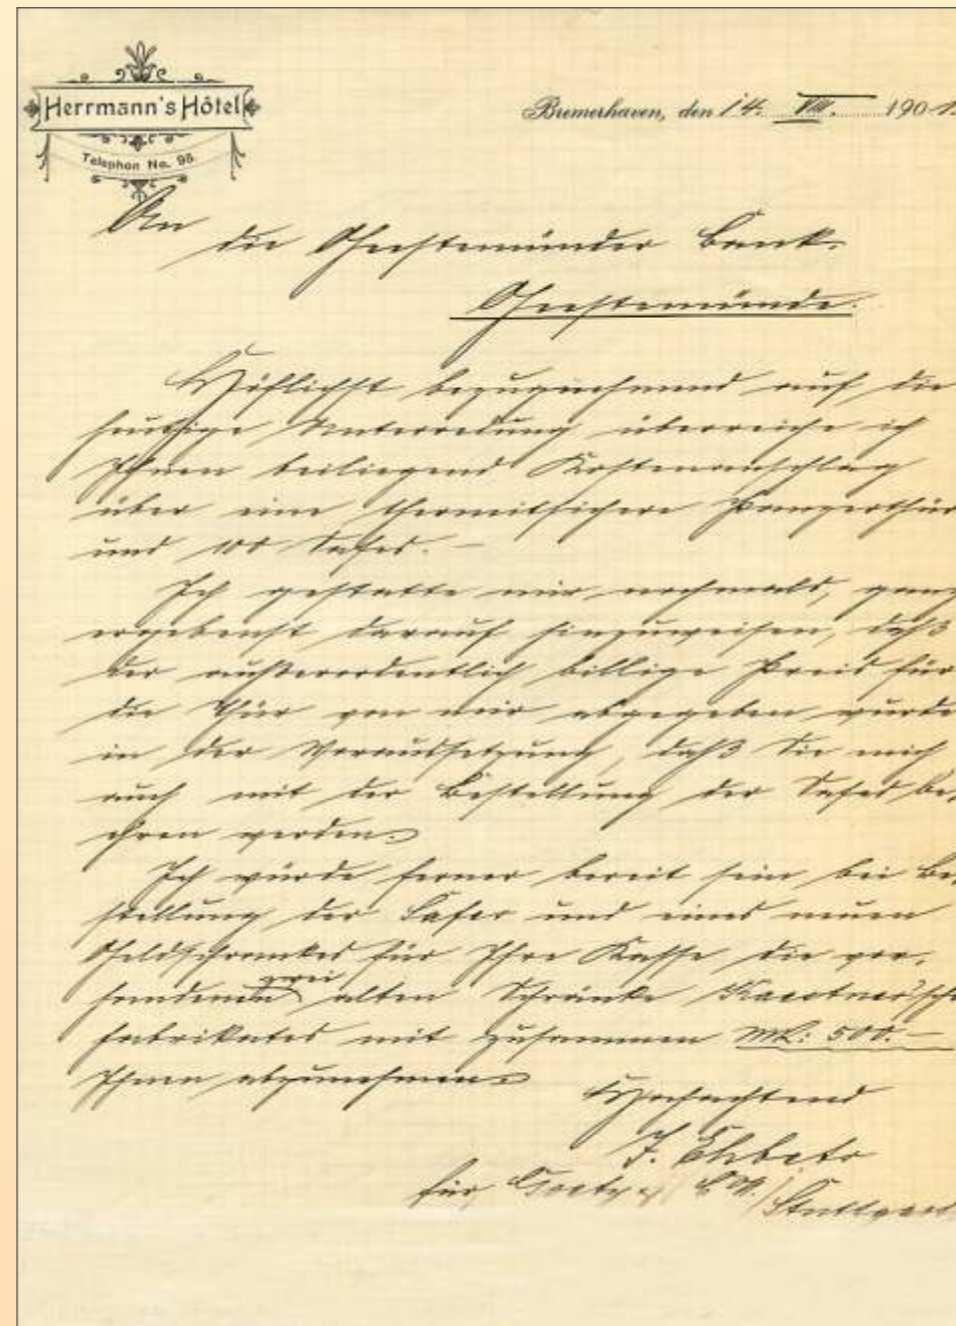 Herrmann's Hôtel
Telephon No. 98.
Bremerhaven, den 14. VIII. 1901.
An
die Geestemünder Bank.
Geestemünde.
Höflichst bezugnehmend auf die
heutige Unterredung überreiche ich
Ihnen beiliegend Kostenanschlag
über eine thermitsichere Panzerthür
und 100 Safes. —
Ich gestatte mir, nochmals, ganz
ergebenst darauf hinzuweisen, daß
der außerordentlich billige Preis für
die Thür von mir abgegeben wurde
in der Voraussetzung, daß Sie mich
auch mit der Bestellung der Safes be-
ehren werden.
Ich würde ferner bereit sein bei Be-
stellung der Safes und eines neuen
Geldschrankes für Ihre Kasse die vor-
handenen zwei alten Schränke
Fabrikates mit zusammen Mk: 500.—
Ihnen abzunehmen.
Hochachtend
J.
für Stuttgart